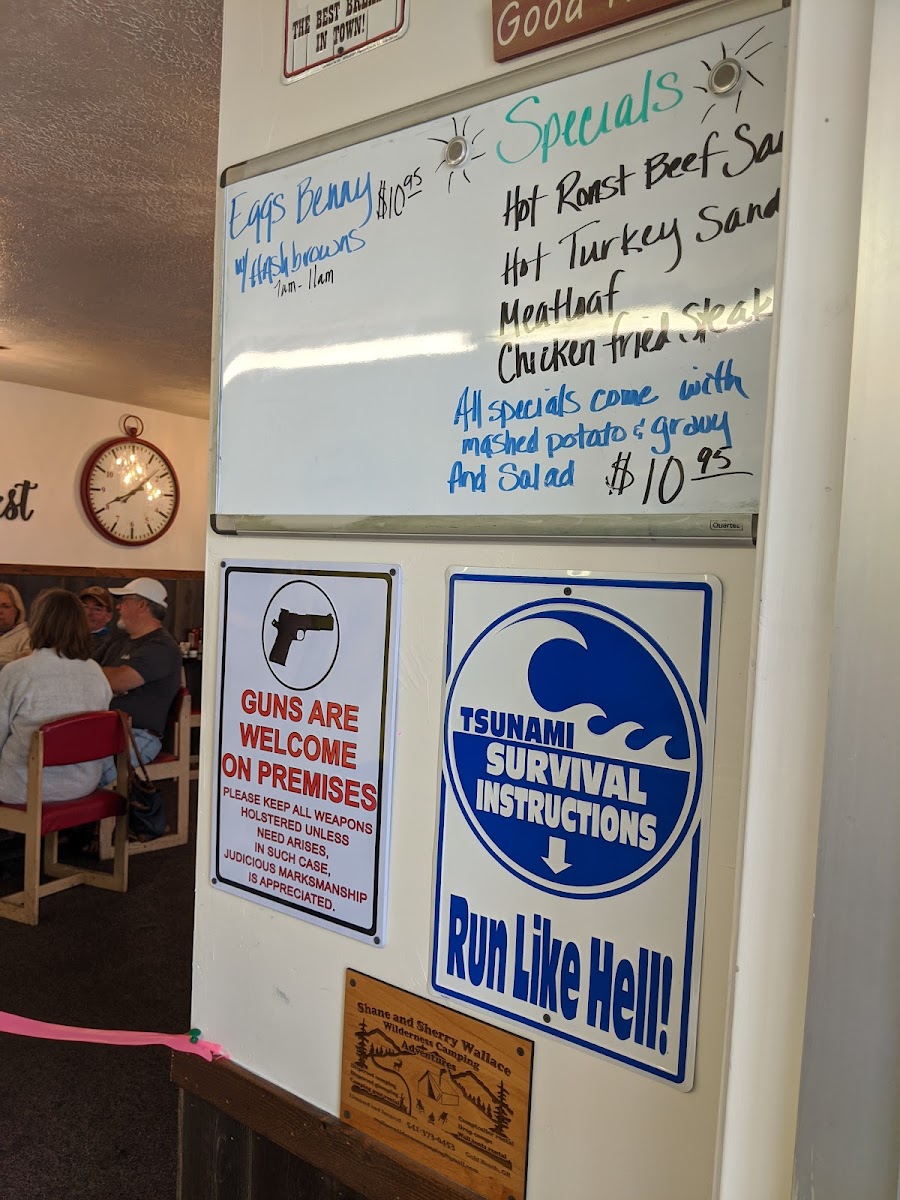 THE BEST
IN TOWN!
Good
Specials
Eggs Benny $10.95
w/ Hashbrowns
7am - 11am
Hot Roast Beef
Hot Turkey Sand
Meatloaf
Chicken fried Steak
All specials come with
mashed potato & gravy
And Salad $10.95
Quartet
est
GUNS ARE
WELCOME
ON PREMISES
PLEASE KEEP ALL WEAPONS
HOLSTERED UNLESS
NEED ARISES,
IN SUCH CASE,
JUDICIOUS MARKSMANSHIP
IS APPRECIATED.
TSUNAMI
SURVIVAL
INSTRUCTIONS
Run Like Hell!
Shane and Sherry Wallace
Wilderness Camping
Adventures
541-373-0453
Gold Beach, OR